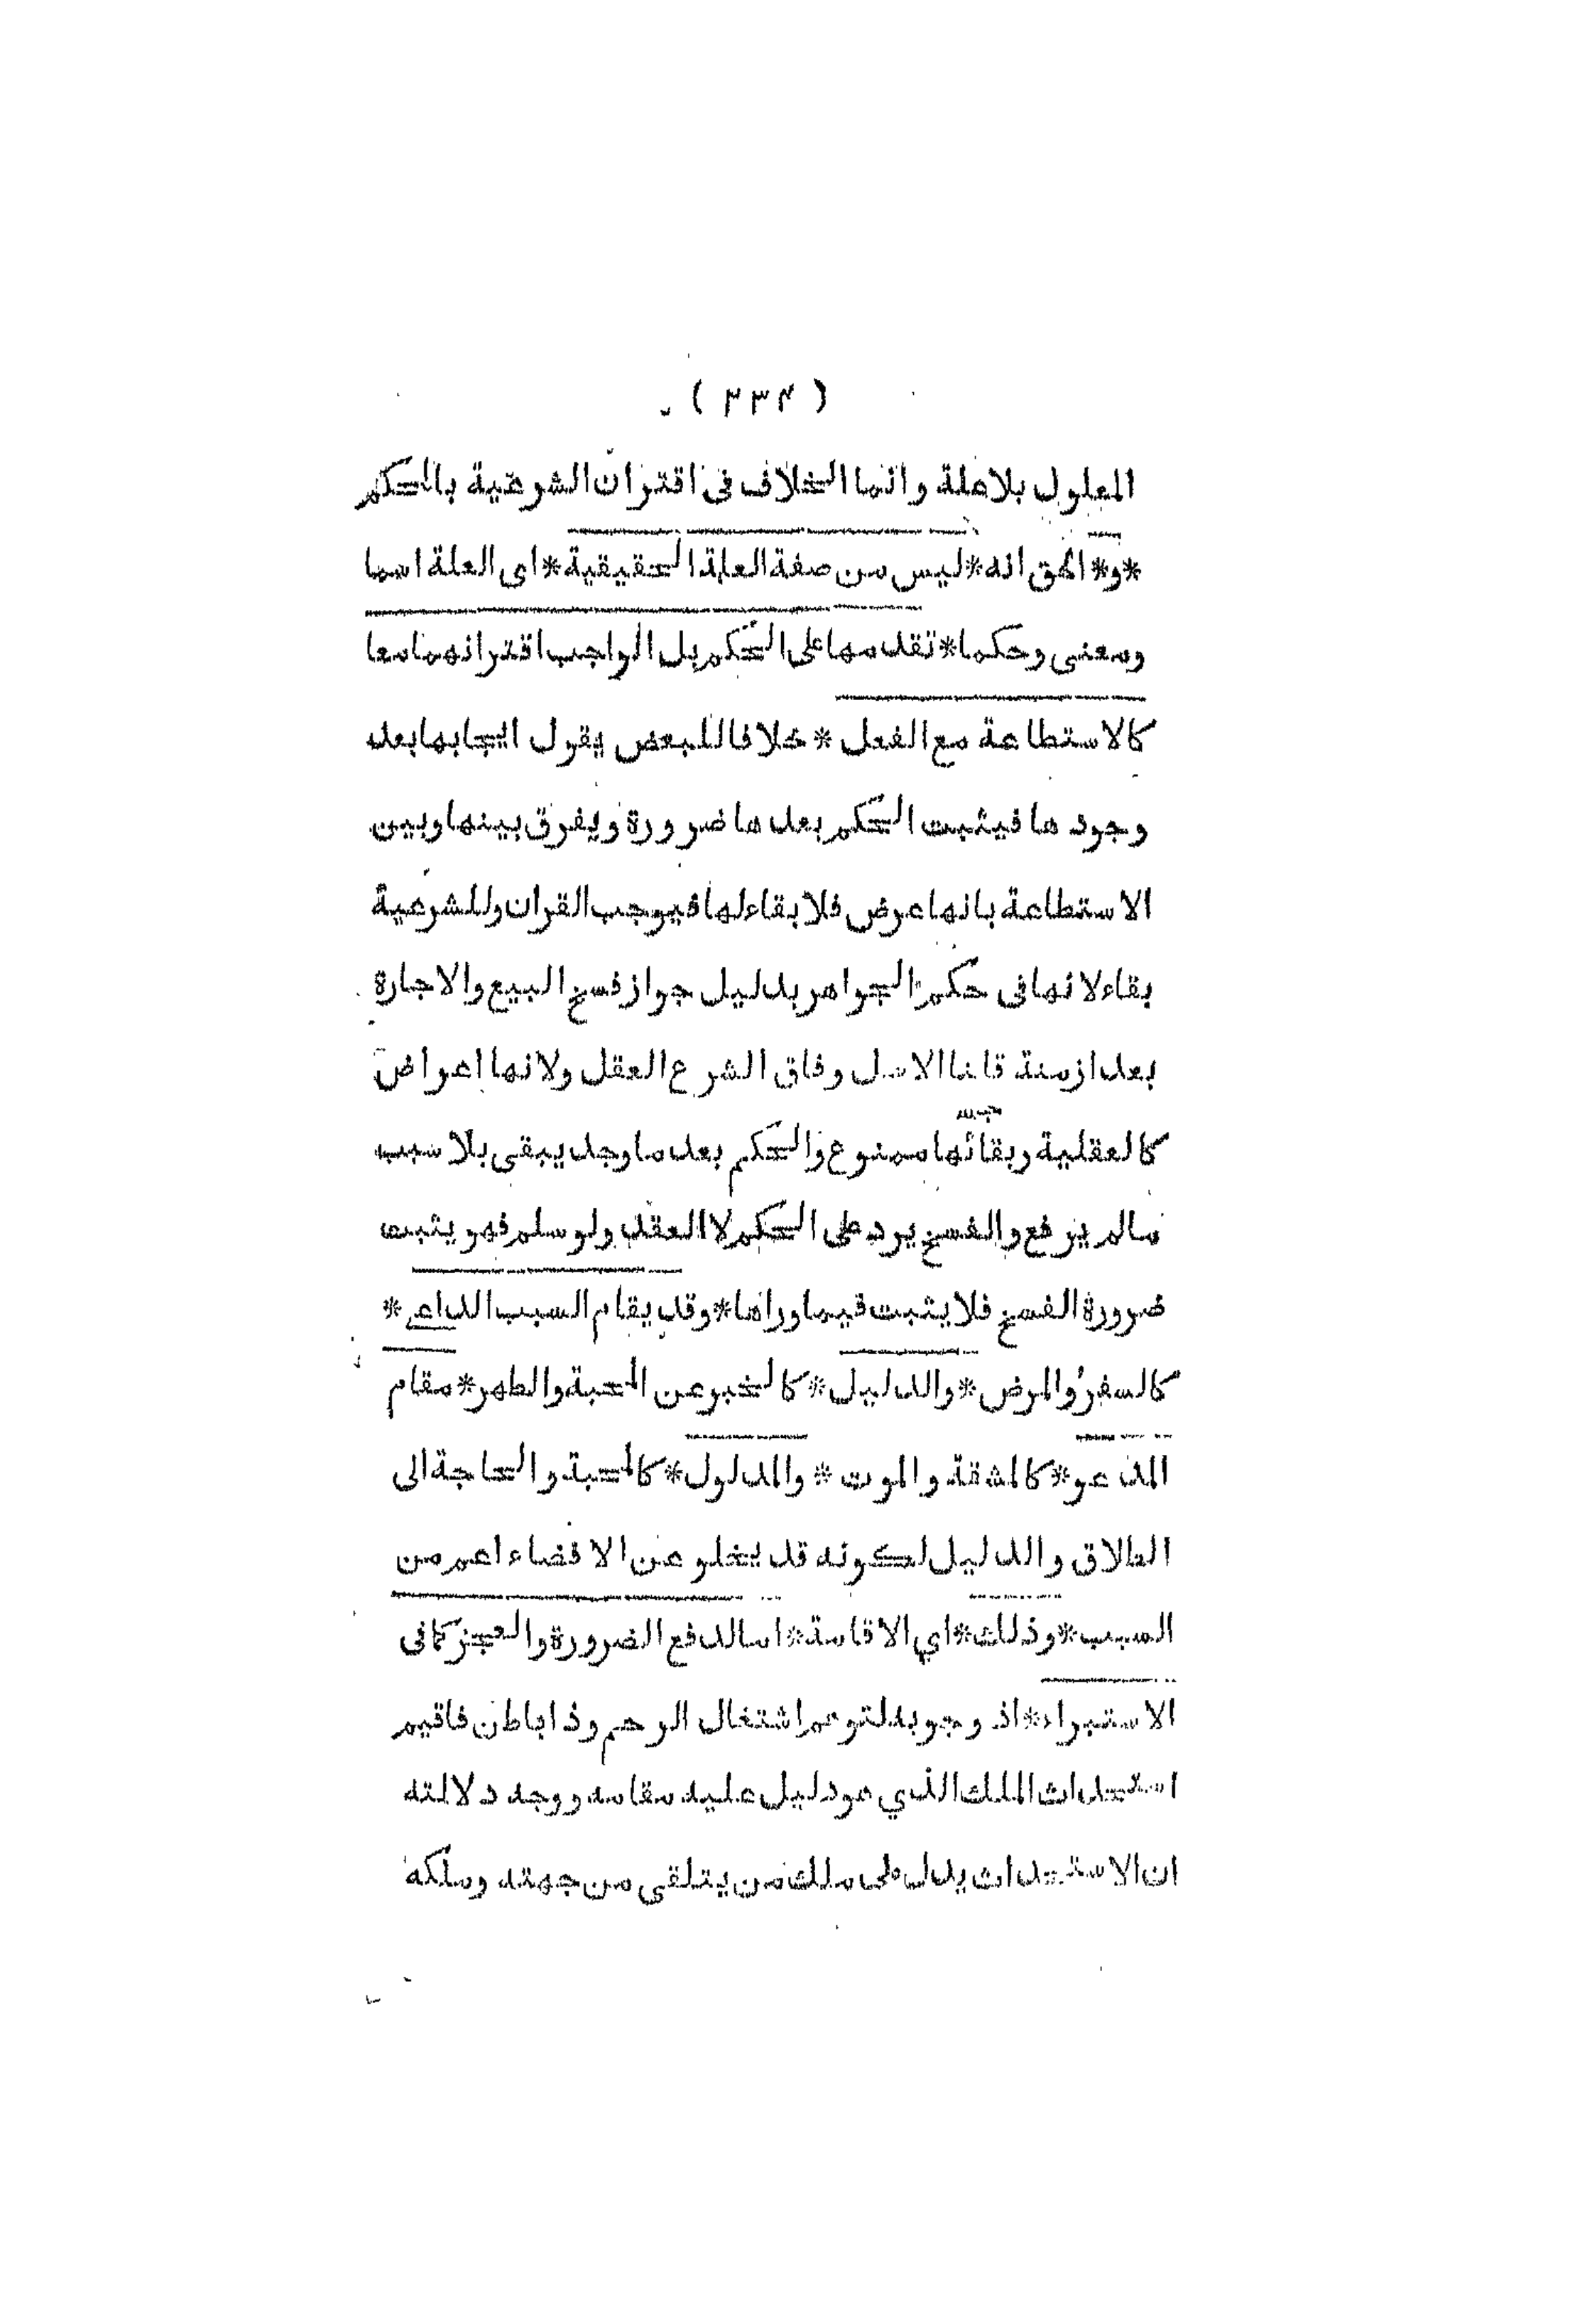 ( ٢٣٤ )
المعلول بلاعلة وانما الخلاف فى اقتران الشرعية بالحكم
*و* الحق انه *ليس من صفة العلة الحقيقية* اى العلة اسما
ومعنى وحكما *تقدمها على الحكم بل الواجب اقترانهما معا
كالاستطاعة مع الفعل * خلافا للبعض يقول ايجابها بعد
وجود ها فيثبت الحكم بعد ها ضرورة ويفرق بينها وبين
الاستطاعة بانها عرض فلا بقاء لها فيوجب القران وللشرعية
بقاء لانها فى حكم الجواهر بدليل جواز فسخ البيع والاجارة
بعد ازمنة قلنا الاصل وفاق الشرع العقل ولانها اعراض
كالعقلية وبقائها ممنوع والحكم بعد ما وجد يبقى بلا سبب
مالم يرفع والفسخ يرد على الحكم لا العقد ولو سلم فهو يثبت
ضرورة الفسخ فلا يثبت فيما وراها *وقد يقام السبب الداعى*
كالسفر والمرض *والدليل* كالخبر عن المحبة والطهر *مقام
المدعو* كالمشقة والموت * والمدلول* كالمحبة والحاجة الى
الطلاق والدليل لكونه قد يخلو عن الافضاء اعم من
السبب *وذلك* اي الاقامة *اما لدفع الضرورة والعجز كما فى
الاستبراء* اذ وجوبه لتوهم اشتغال الرحم وذا باطن فاقيم
استحداث الملك الذي هو دليل عليه مقامه ووجه دلالته
ان الاستحداث يدل على ملك من يتلقى من جهته وملكه